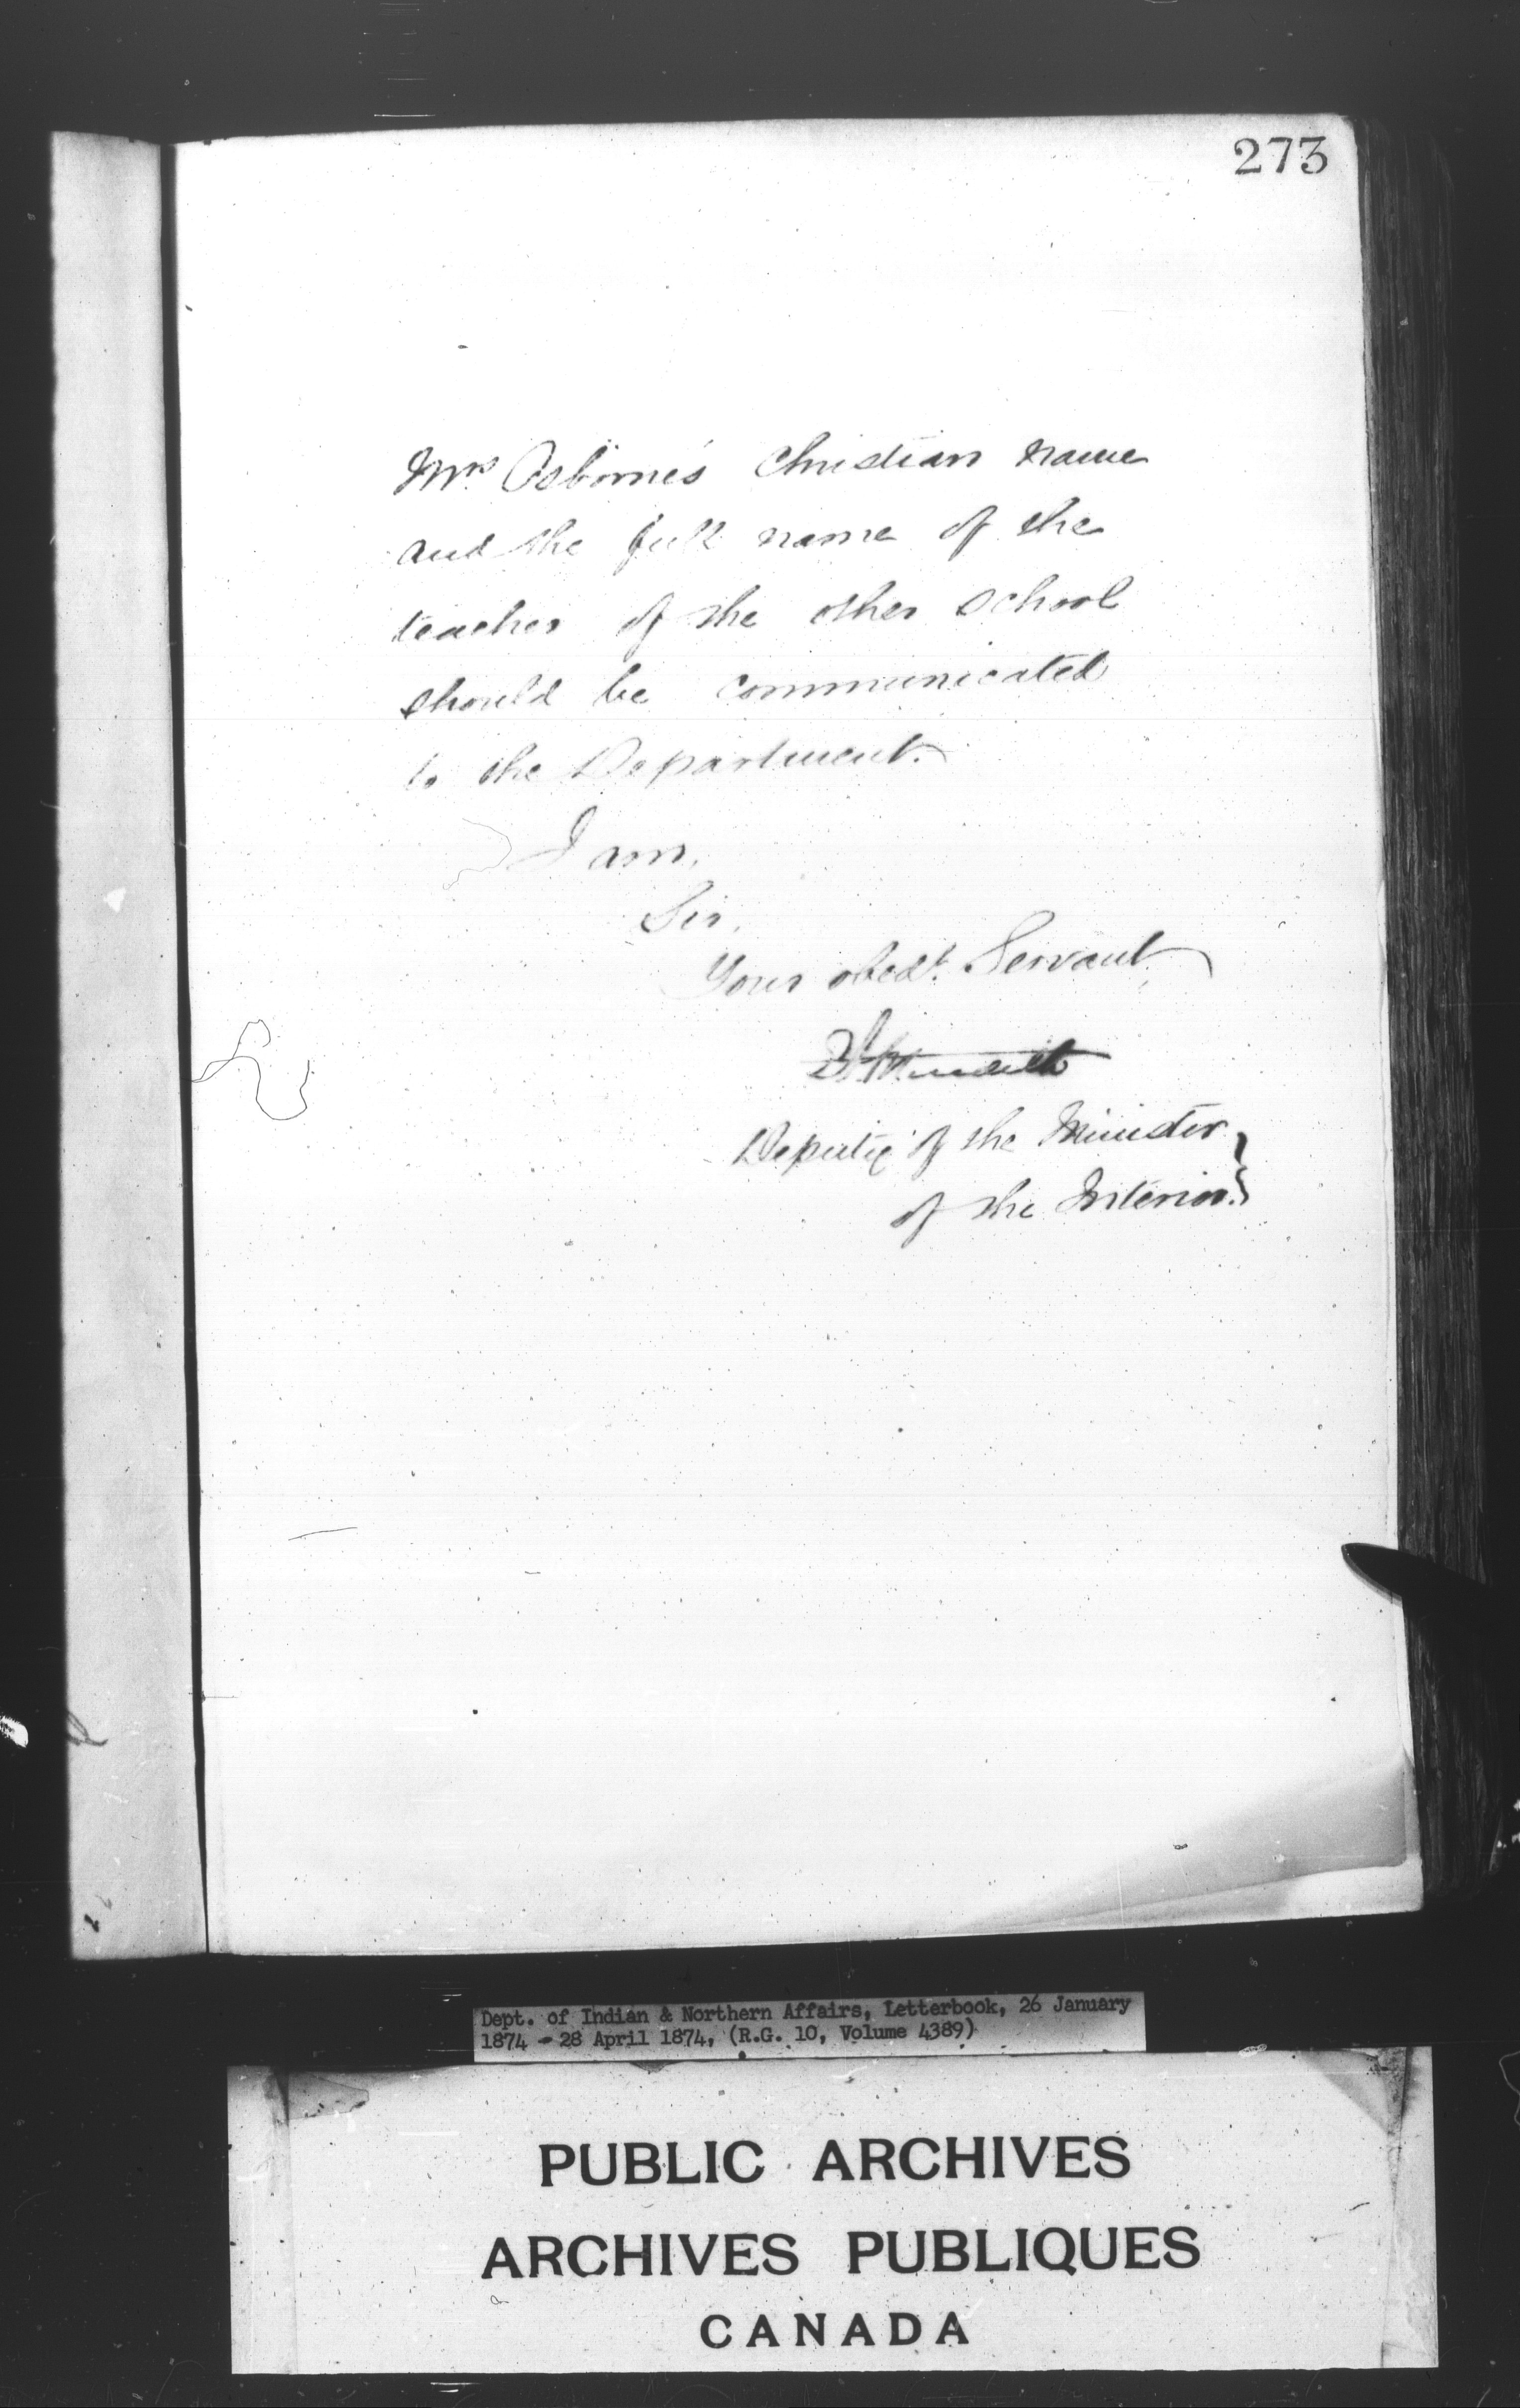 273
Mrs Osborne's Christian name
and the full name of the
teacher of the other School
should be communicated
to the Department.
I am,
Sir,
Your obedt. Servant,
Deputy of the Minister
of the Interior.
Dept. of Indian & Northern Affairs, Letterbook, 26 January
1874 - 28 April 1874, (R.G. 10, Volume 4389)
PUBLIC ARCHIVES
ARCHIVES PUBLIQUES
CANADA